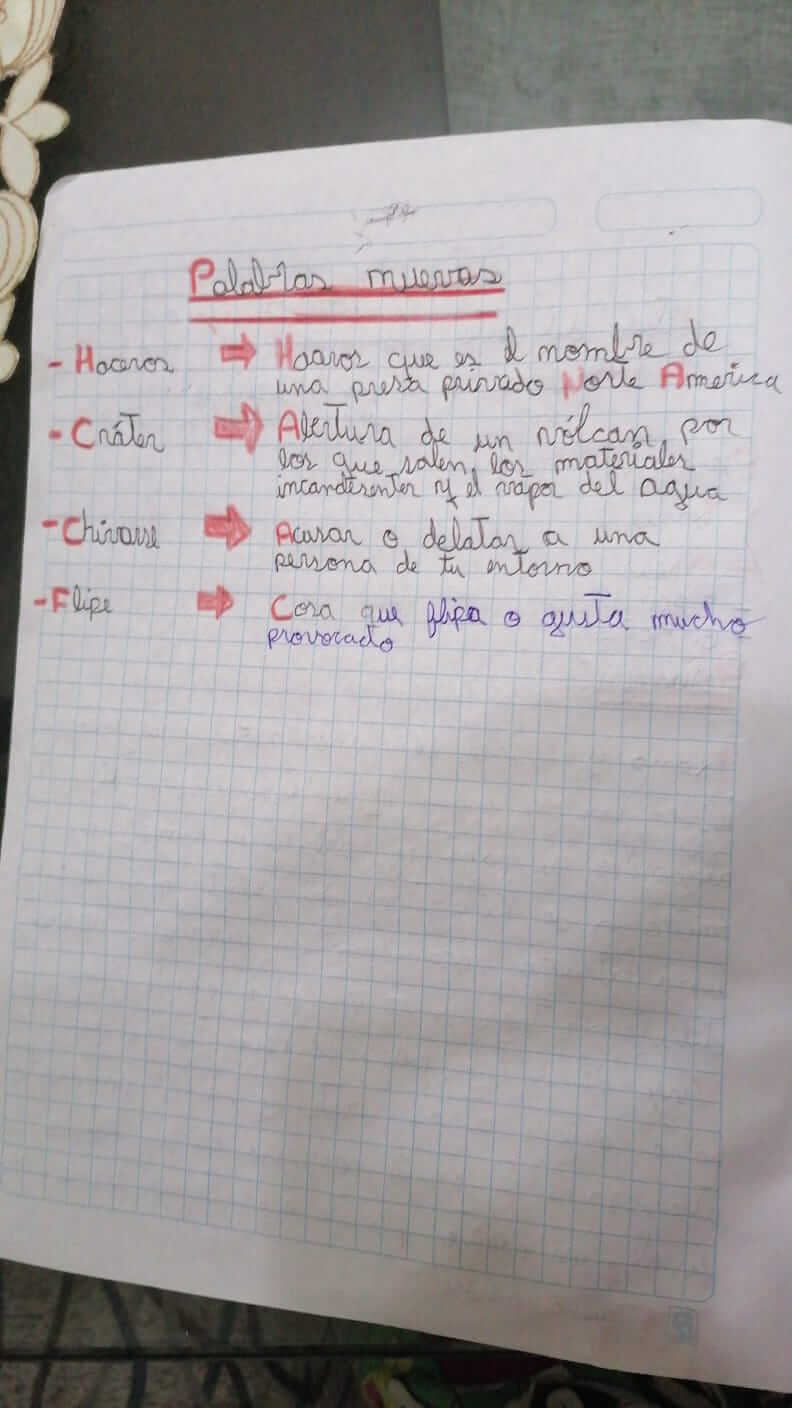 Palabras nuevas
- Haceros → Hoavor que es el nombre de
una presa privado Norte America
- Cráter → Abertura de un vólcan, por
los que salen, los materiales
incanderenter y el vapor del agua
- Chivarse → Acusar o delatar a una
persona de tu entorno
- Flipe → Cosa que flipa o gusta mucho
provocado